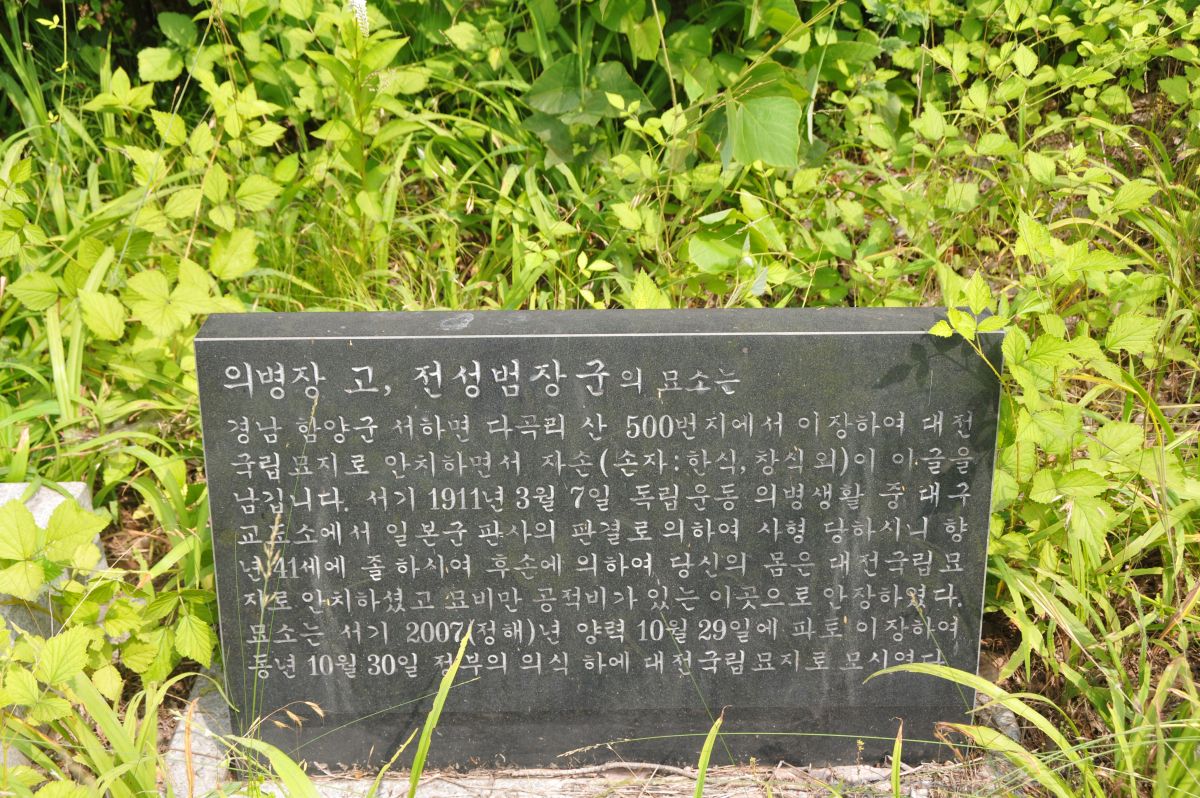 의병장 고, 전성범장군의 묘소는
경남 함양군 서하면 다곡리 산 500번지에서 이장하여 대전
국립묘지로 안치하면서 자손(손자:한식,창식외)이 이글을
남깁니다. 서기 1911년 3월 7일 독립운동 의병생활 중 대구
교도소에서 일본군 판사의 판결로 의하여 사형 당하시니 향
년 41세에 졸하시여 후손에 의하여 당신의 몸은 대전국립묘
지로 안치하셨고 묘비만 공적비가 있는 이곳으로 안장하였다.
묘소는 서기 2007(정해)년 양력 10월 29일에 파토 이장하여
동년 10월 30일 정부의 의식 하에 대전국립묘지로 모시였다